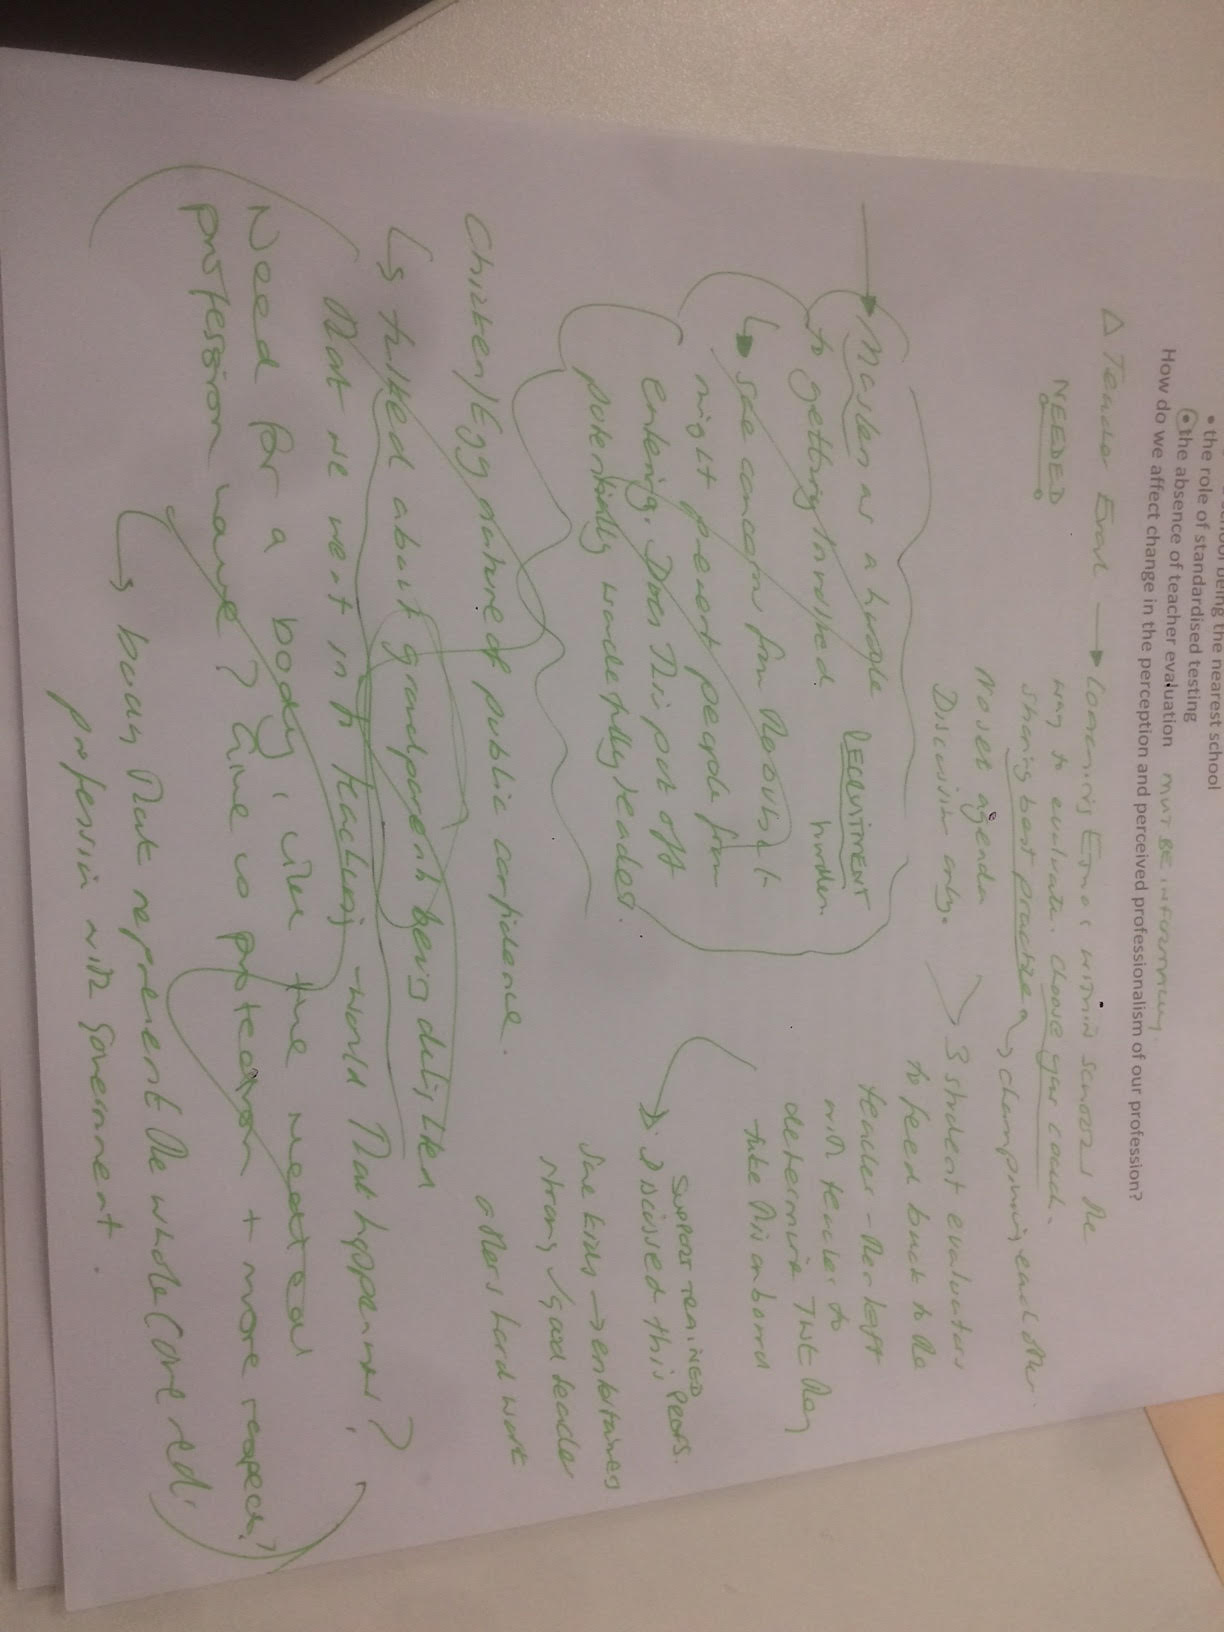 being the nearest school
• the role of standardised testing
• the absence of teacher evaluation MUST BE INFORMATIVE,
How do we affect change in the perception and perceived professionalism of our profession?
△ Teacher Eval → Learning within schools the
NEEDED
way to evaluate. choose your coach.
sharing best practice → championing each other.
No set agenda
Discussion only.
3 student evaluators
to feed back to the
teacher - then left
with teacher to
determine they
take this onboard
→ Masters as a hurdle
to getting involved
RECRUITMENT
↳ some concern from
might prevent people from
entering. Does this put off
potentially wonderfully leaders.
SUPPORT TRAINED Peers.
→ Discussed this
some kids → entertainers
strong / good teacher
others hard work
Chicken/Egg nature of public confidence.
↳ talked about grandparents being
that we went in to teaching - would that happen now?
Need for a body, like the medical
profession have? Give us protection + more respect?
↳ body that represent the whole
profession with Government.